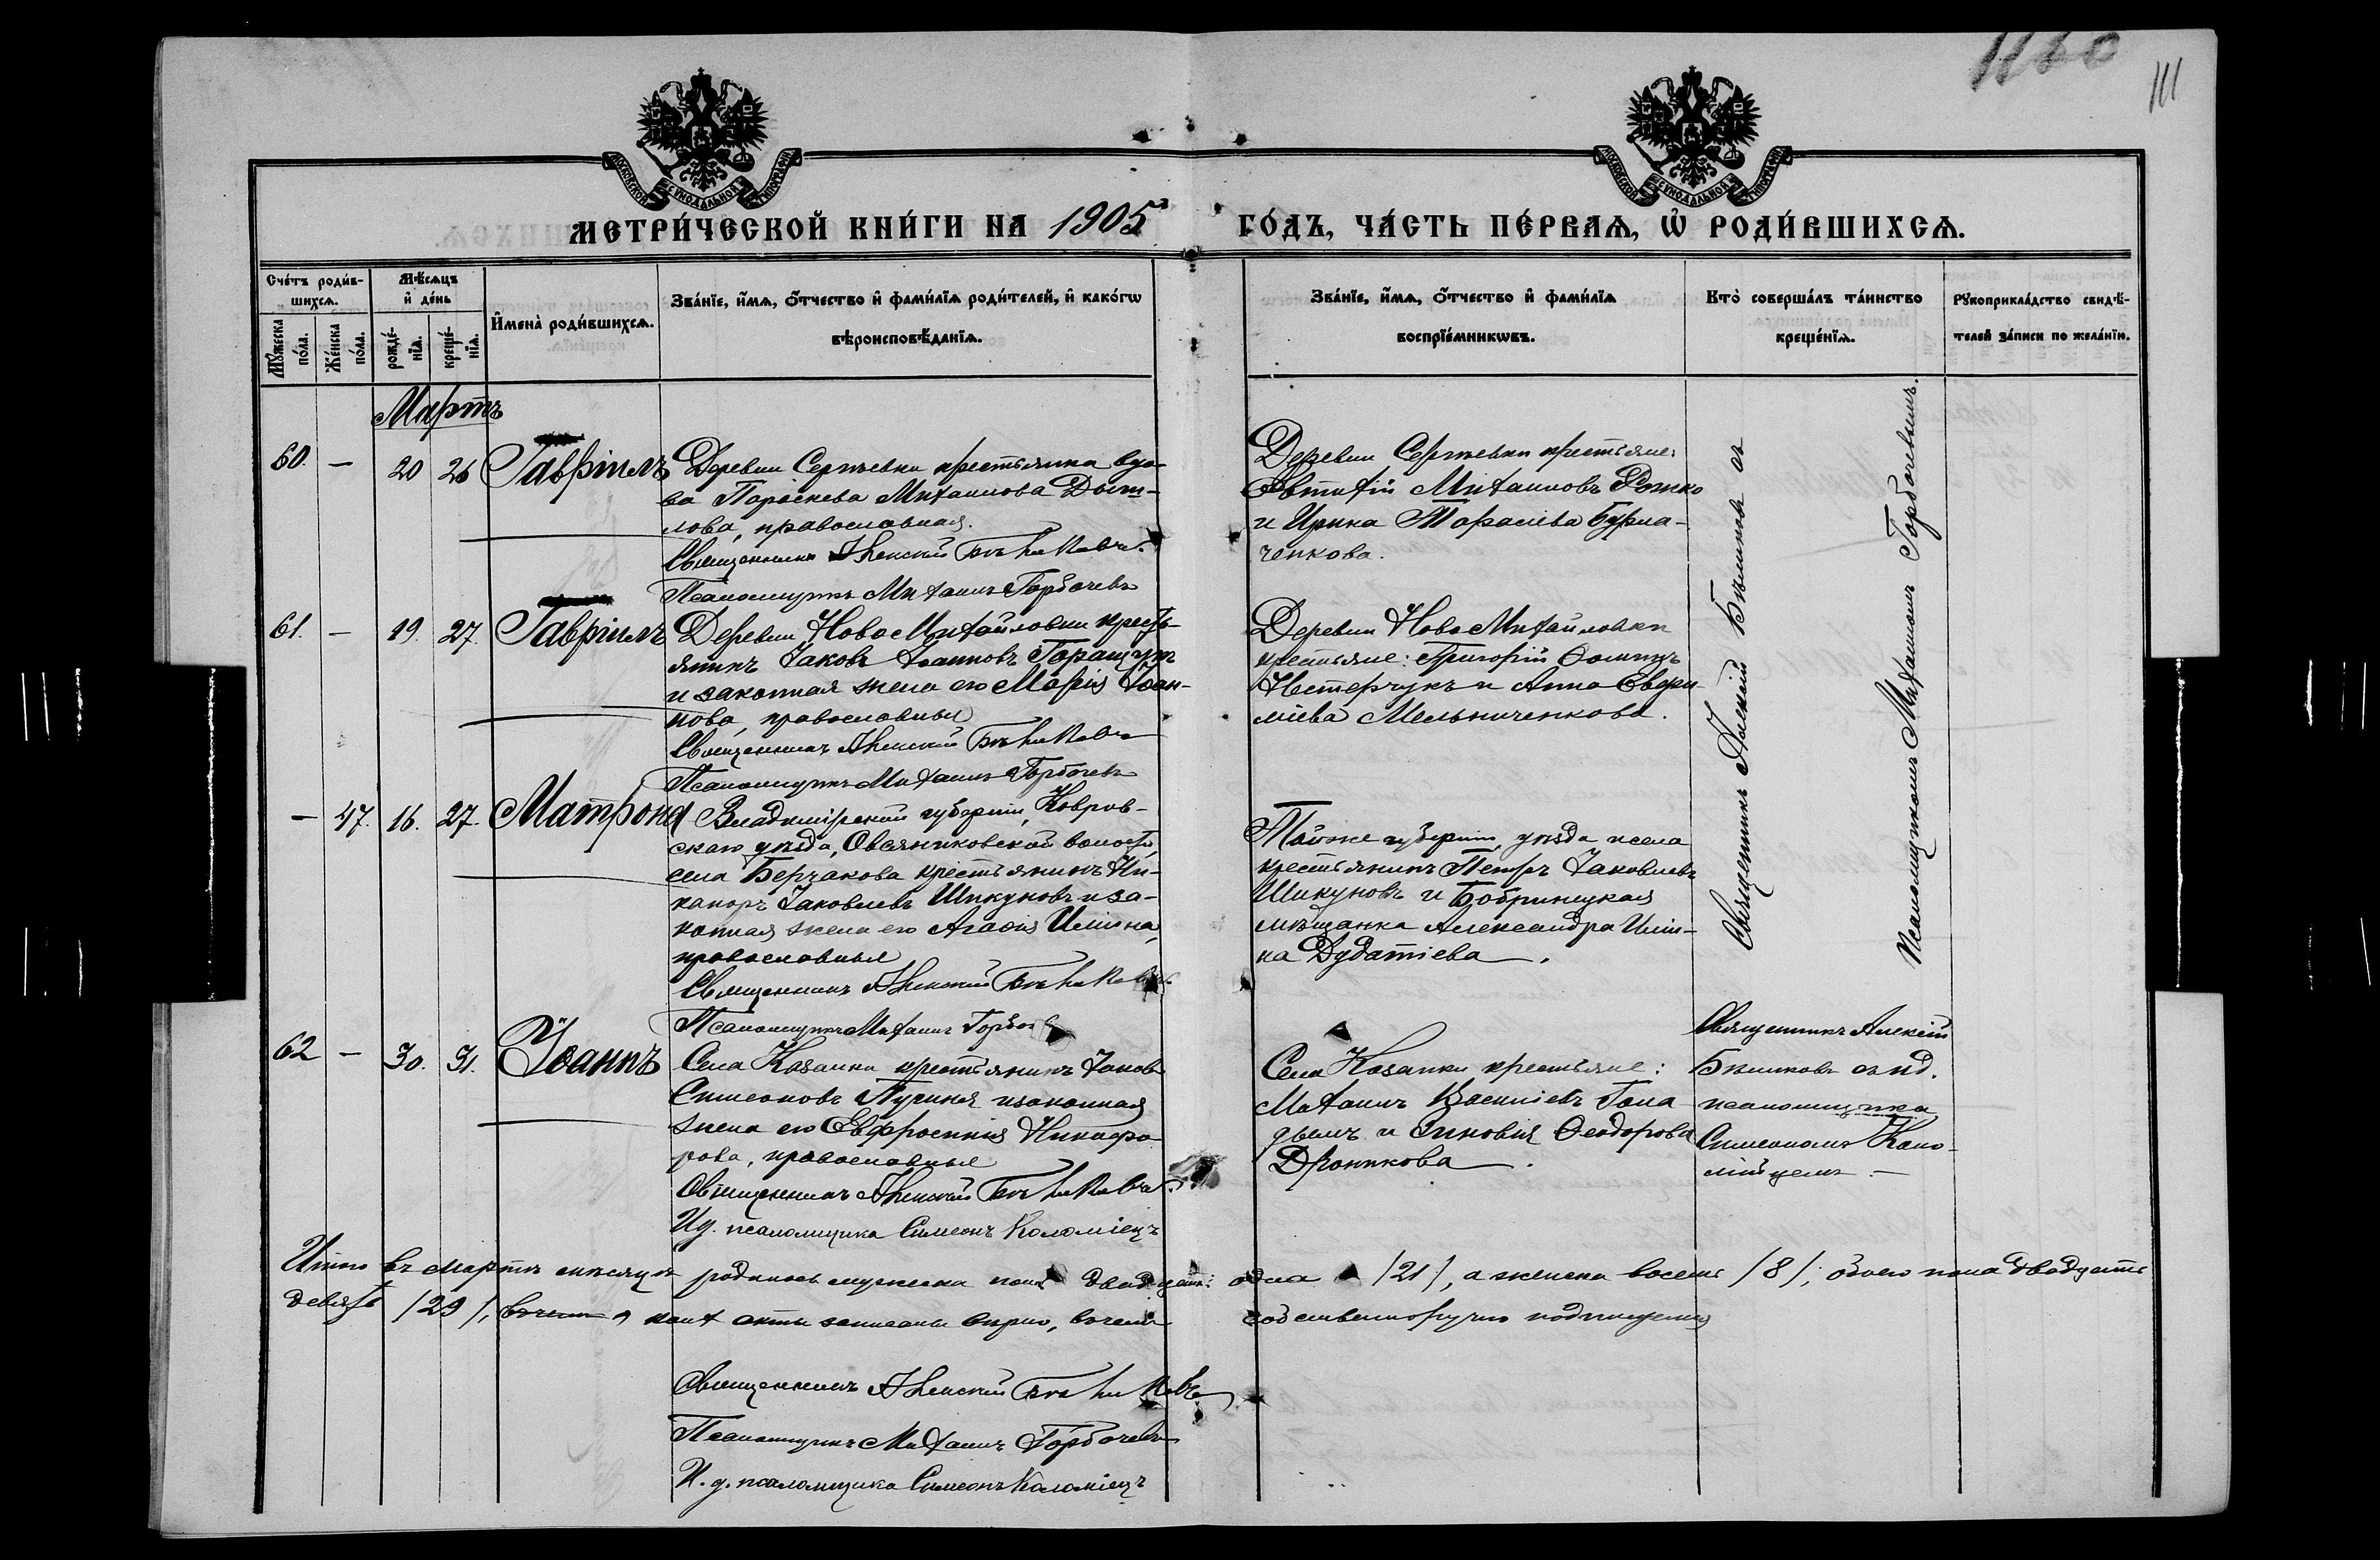 1160
111
МОСКОВСКОЙ СѴНОДАЛЬНОЙ ТИПОГРАФІИ
МОСКОВСКОЙ СѴНОДАЛЬНОЙ ТИПОГРАФІИ
МЕТРИ́ЧЕСКОЙ КНИ́ГИ НА 1905 ГО́ДЪ, ЧА́СТЬ ПЕ́РВАѦ, Ѡ҆ РОДИ́ВШИХСѦ.
Сче́тъ роди́в-
шихсѧ.
Мꙋ́жеска
по́ла.
Же́нска
по́ла.
Мѣ́сѧцъ
и҆ де́нь
рожде́-
нїѧ.
креще́-
нїѧ.
И҆мена̀ роди́вшихсѧ.
Зва́нїе, и҆́мѧ, ѻ҆́тчество и҆ фами́лїѧ роди́телей, и҆ како́гѡ
вѣроисповѣ́данїѧ.
Зва́нїе, и҆́мѧ, ѻ҆́тчество и҆ фами́лїѧ
воспрїе́мникѡвъ.
Кто̀ соверша́лъ та́инство
креще́нїѧ.
Рꙋкоприкла́дство свидѣ́-
телей за́писи по жела́нїю.
Мартъ
60. — 20 26 Гавріилъ
Деревни Сергѣевки крестьянка вдо-
ва Параскева Михаилова
православная.
Священникъ Алексій Бѣликовъ
Псаломщикъ Михаилъ Горбачевъ
Деревни Сергѣевки крестьяне:
Евтихій Михаиловъ Рожко
и Ирина Тарасіева Бурла-
ченкова.
61. — 19. 27. Гавріилъ
Деревни НовоМихайловки кресть-
янинъ Іаковъ Іоанновъ Горащукъ
и законная жена его Марія Іоан-
нова, православные
Священникъ Алексій Бѣликовъ
Псаломщикъ Михаилъ Горбачевъ
Деревни НовоМихайловки
крестьяне: Григорій Ѳоминъ
Нестерчукъ и Анна Евфи-
міева Мельниченкова.
— 47. 16. 27. Матрона
Владимірской губерніи, Ковров-
скаго уѣзда, Овсянниковской волости,
села Берчакова крестьянинъ Ни-
каноръ Іаковлевъ Шикуновъ и за-
конная жена его Агаѳія Иліина,
православные
Священникъ Алексій Бѣликовъ
Псаломщикъ Михаилъ Горбачевъ
Тойже губерніи, уѣзда и села
крестьянинъ Петръ Іаковлевъ
Шикуновъ и Бобринецкая
мѣщанка Александра Иліи-
на Дудатіева.
Священникъ Алексій Бѣликовъ съ
Псаломщикомъ Михаиломъ Горбачевымъ.
62 — 30. 31. Іоаннъ
Села Казанки крестьянинъ Іаковъ
Симеоновъ и законная
жена его Евфросинія Никифо-
рова, православные
Священникъ Алексій Бѣликовъ
И.д. псаломщика Симеонъ Коломіецъ
Села Казанки крестьяне:
Михаилъ Василіевъ
и Зиновія Ѳеодорова
Дронникова.
Священникъ Алексій
Бѣликовъ съ и.д.
псаломщика
Симеономъ Коло-
мійцемъ.
Итого въ мартѣ мѣсяцѣ родилось мужеска пола двадцать одна /21/, а женска восемь /8/; обоего пола двадцать
девять /29/, акты записаны вѣрно, въ чемъ собственноручно подпишемся
Священникъ Алексій Бѣликовъ
Псаломщикъ Михаилъ Горбачевъ
И.д. псаломщика Симеонъ Коломіецъ